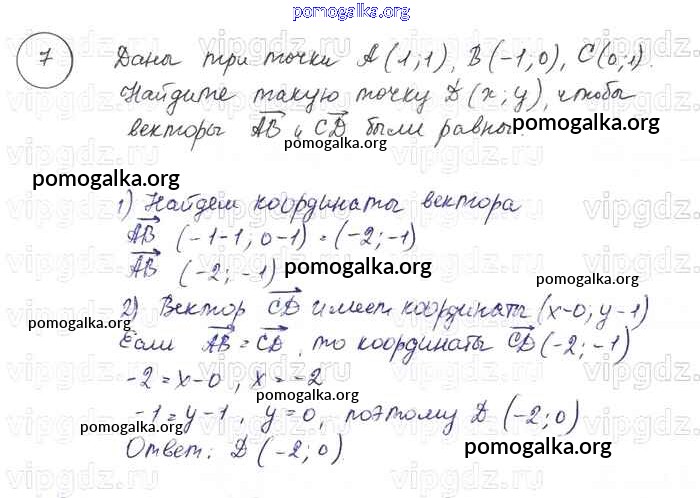 pomogalka.org
7 Даны три точки A(1;1), B(-1;0), C(0;1).
Найдите такую точку D(x;y), чтобы
векторы AB и CD были равны.
pomogalka.org
pomogalka.org
pomogalka.org
1) Найдем координаты вектора
AB (-1-1; 0-1) = (-2; -1)
AB (-2; -1)
pomogalka.org
pomogalka.org
2) Вектор CD имеет координаты (x-0; y-1)
pomogalka.org
Если AB = CD, то координаты CD (-2; -1)
-2 = x-0, x = -2
pomogalka.org
-1 = y-1, y = 0, поэтому D (-2; 0)
pomogalka.org
Ответ: D (-2; 0)
pomogalka.org
vipgdz.ru